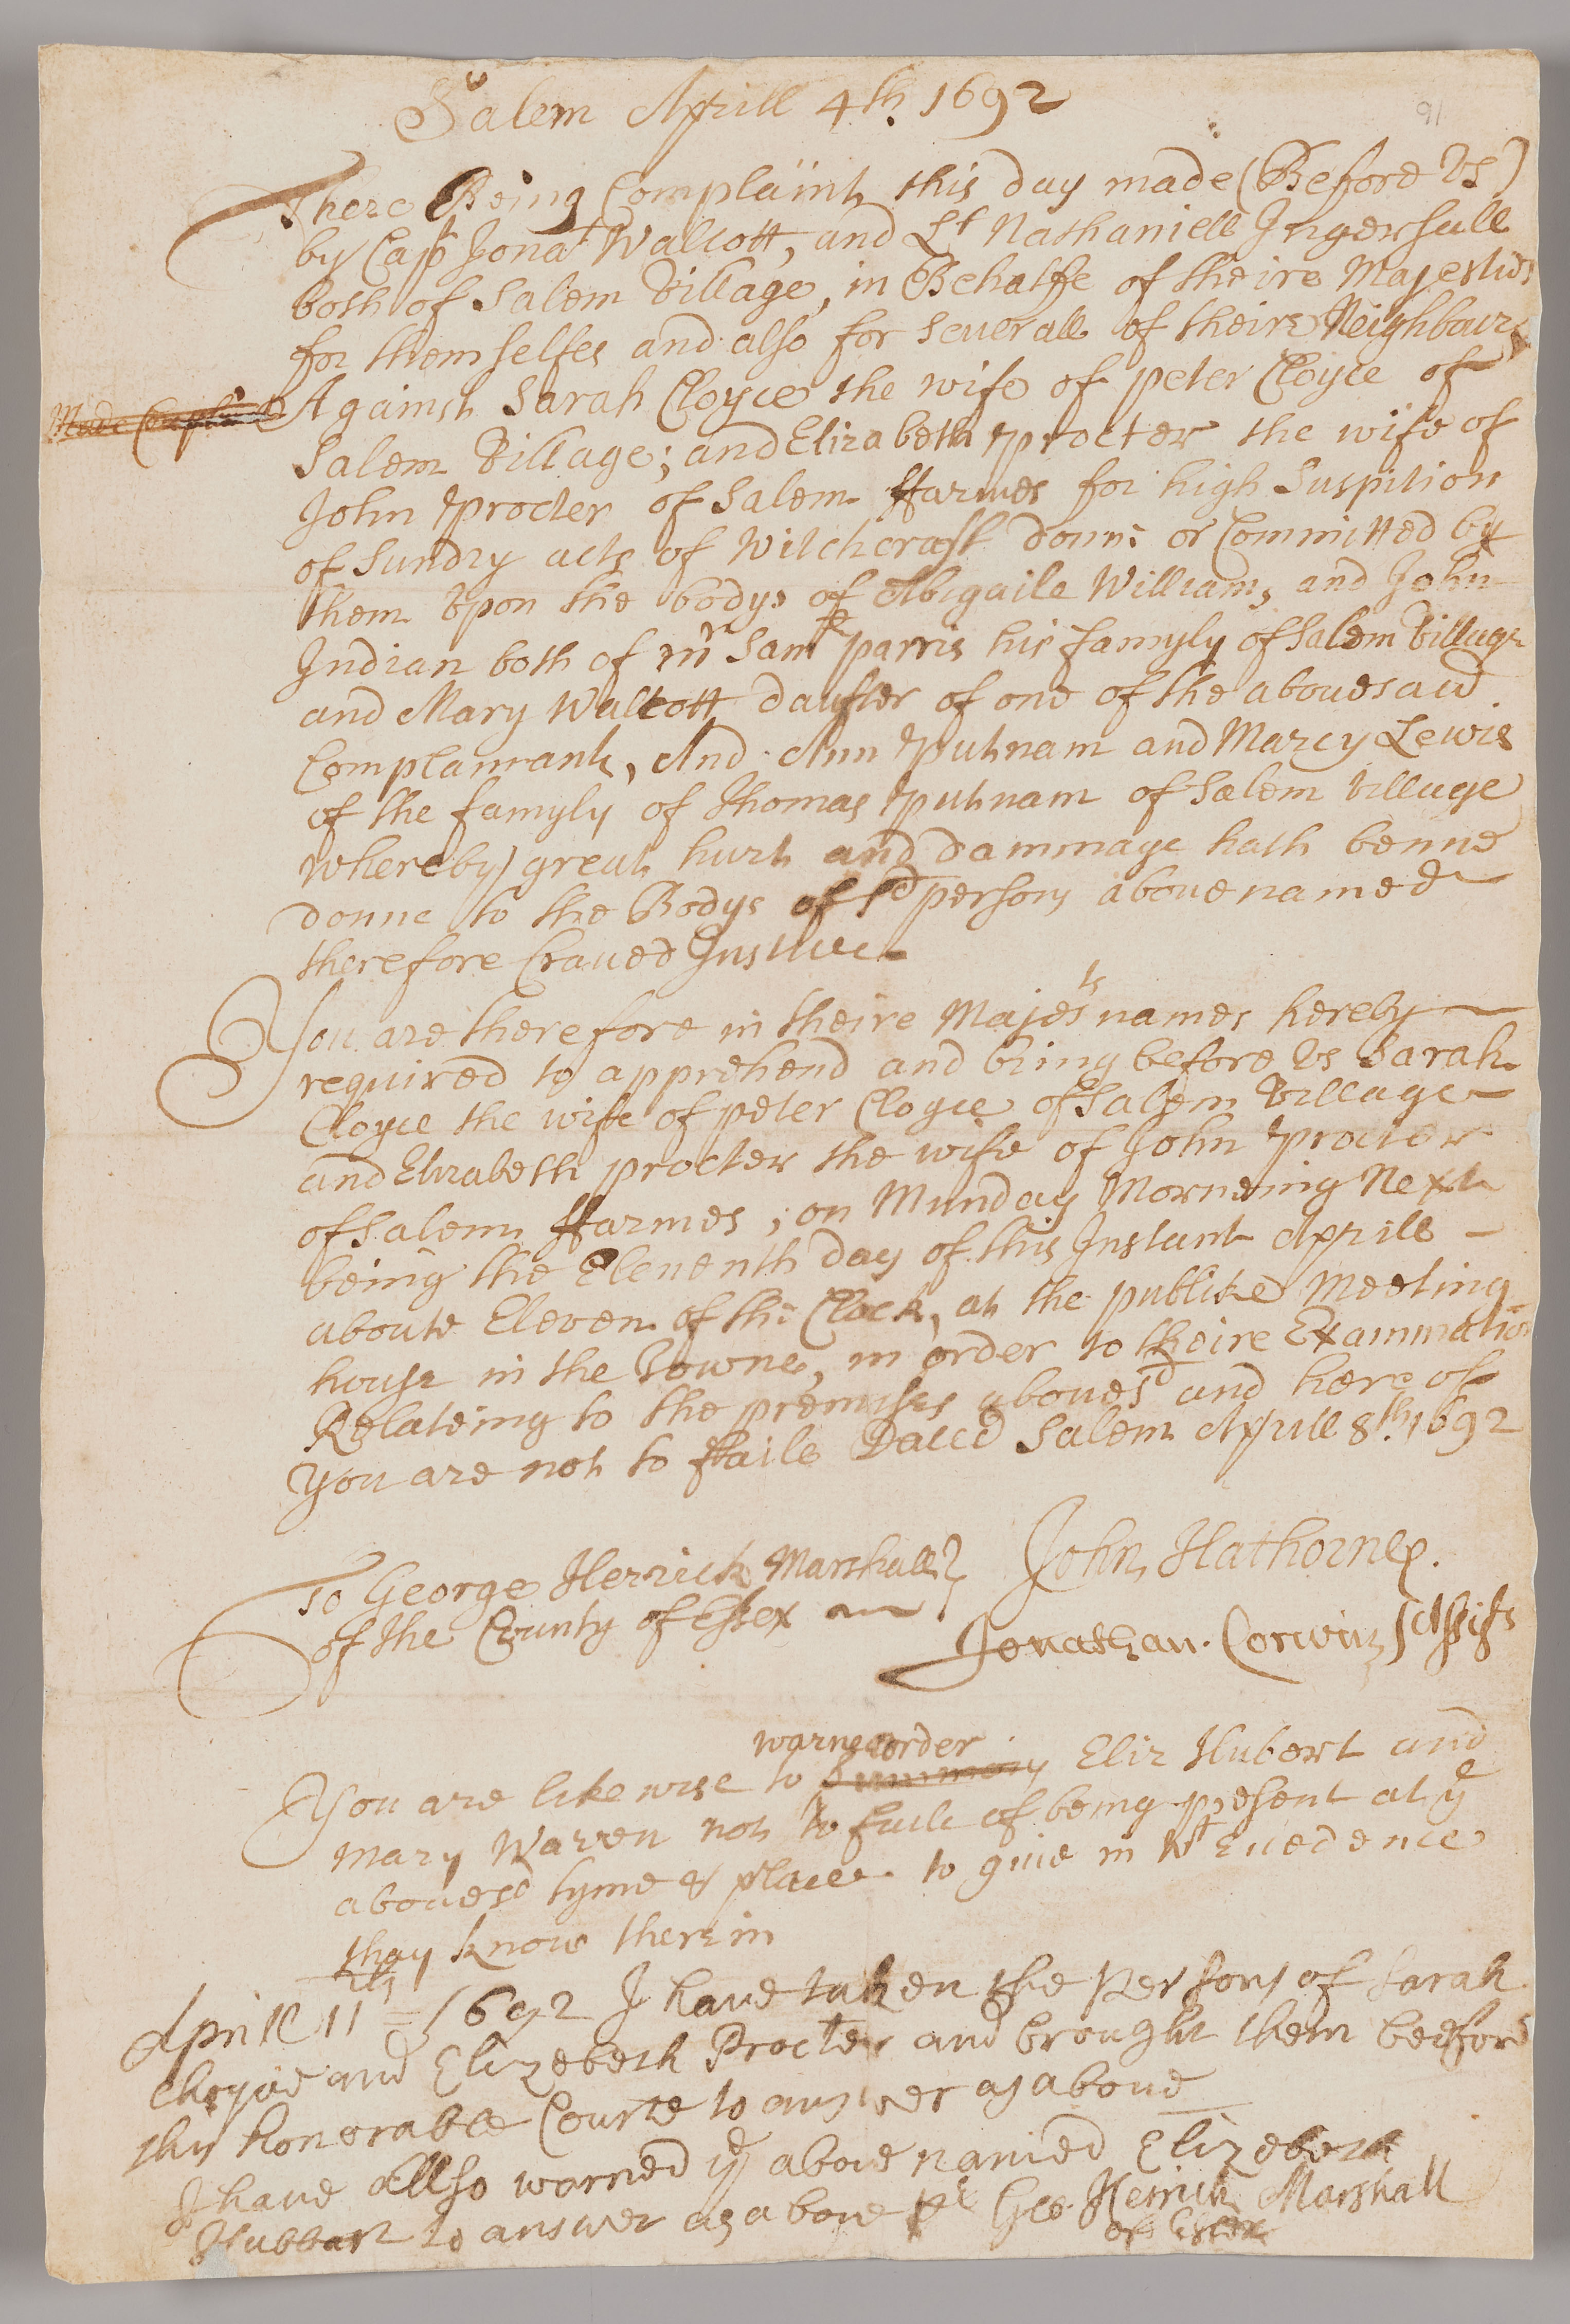 Salem Aprill 4th. 1692
91
There Being Complaint this day made (Before Us)
by Capt Jonat Walcott, and Lt Nathaniell Ingersull
both of Salem Village, in Behalfe of theire Majesties
for themselfes and also for severall of theire Neighbours
Made Complaint Against Sarah Cloyce the wife of peter Cloyce of
Salem Village; and Elizabeth procter the wife of
John procter of Salem ffarmes for high Suspition
of Sundry acts of Witchcraft donne or Committed by
them Upon the bodys of Abigaile Williams and John
Indian both of mr Saml parris his famyly of Salem Village
and Mary Walcott daufter of one of the abouesaid
Complainants, And Ann putnam and Marcy Lewis
of the famyly of Thomas putnam of Salem Village
whereby great hurt and dammage hath benne
donne to the Bodys of sd persons aboue named
therefore Craued Justice
You are therefore in theire Majests names hereby
required to apprehend and bring before Us Sarah
Cloyce the wife of peter Cloyce of Salem Village
and Elizabeth procter the wife of John procter
of Salem ffarmes; on Munday Morneing Next
being the Eleuenth day of this Instant Aprill
aboute Eleven of the Clock, at the publike Meeting
house in the Towne, in order to theire Examination
Relateing to the premises abouesd and here of
You are not to ffaile Dated Salem Aprill 8th. 1692
To George Herrick Marshall
of the County of Essex
John Hathorne
Jonathan. Corwin Assists
warne order
You are likewise to Summons Eliz Hubert and
Mary Warren not to faile of being present at ye
abouesd tyme & place to giue in wt Euedence
thay know therein
Aprill 11th 1692 I haue taken the persons of Sarah
Cloyce and Elizebeth Procter and brought them beefore
this honorable Courte to answer as aboue
I haue allso warned ye aboue named Elizebeth
Hubbart to answer as aboue pr Geo. Herrick Marshall
of Essex